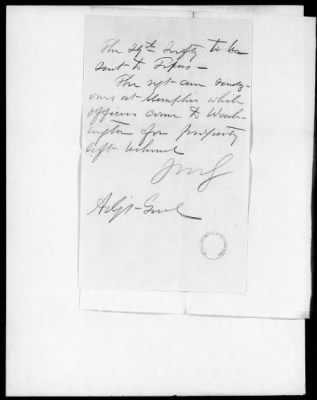 The 29th Infty to be
sent to Texas —
The rgt can rendz-
vous at Memphis while
officers come to Wash-
ington for property
left behind
Adjt-Genl